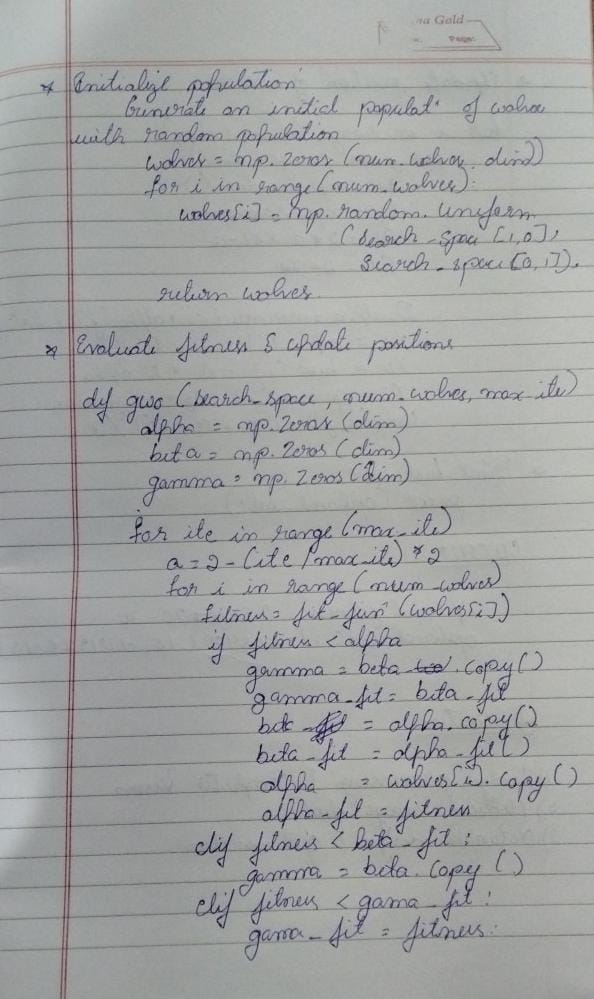 na Gold
Page:
* Initialize population
Generate an initial populatⁿ of wolves
with random population
wolves = np. zeros (num_wolves, dim)
for i in range (num_wolves):
wolves[i] = np. random. uniform
(search_space [1,0],
search_space [0,1]).
return wolves
* Evaluate fitness & update positions
def gwo (search_space, num_wolves, max ite)
alpha = np. zeros (dim)
beta = np. zeros (dim)
gamma = np. zeros (dim)
for ite in range (max_ite)
a = 2 - (ite / max_ite) * 2
for i in range (num_wolves)
fitness = fit_fun (wolves[i])
if fitness < alpha
gamma = beta .copy()
gamma_fit = beta_fit
beta = alpha.copy()
beta_fit = alpha_fit()
alpha = wolves[i]. copy()
alpha_fit = fitness
elif fitness < beta_fit :
gamma = beta. copy ()
elif fitness < gama_fit :
gama_fit = fitness: